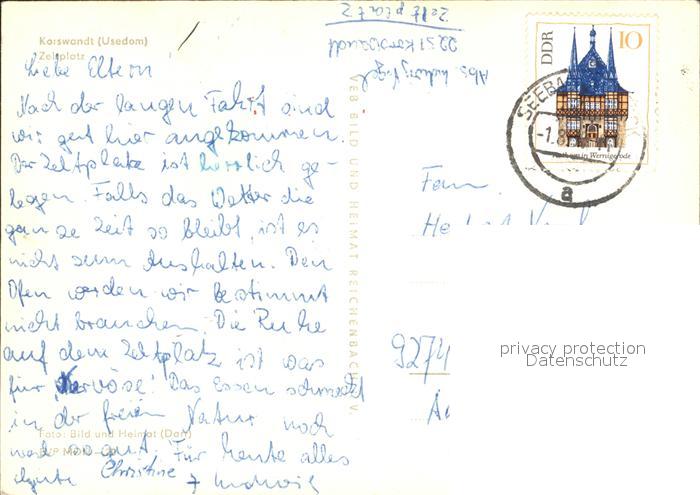 Korswandt (Usedom)
Zeltplatz
Liebe Eltern
Nach der langen Fahrt sind
wir gut hier angekommen.
Der Zeltplatz ist herrlich ge-
legen. Falls das Wetter die
ganze Zeit so bleibt, ist es
nicht zum Aushalten. Den
Ofen werden wir bestimmt
nicht brauchen. Die Ruhe
auf dem Zeltplatz ist was
für Nervöse! Das Essen schmeckt
in der freien Natur noch
mal so gut. Für heute alles
Gute Christine + Ludwig
Foto: Bild und Heimat (Dan)
VEB BILD UND HEIMAT REICHENBACH I. V.
Abs. Ludwig
2251 Korswandt
Zeltplatz
DDR
10
Rathaus in Wernigerode
SEEBA
-1.8
a
Fam.
9274
privacy protection
Datenschutz